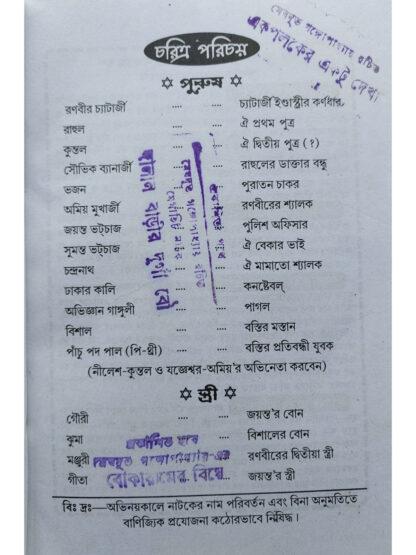 মেঘদূত গঙ্গোপাধ্যায় রচিত
একপলকের একটু দেখা
চরিত্র পরিচয়
✡ পুরুষ ✡
রণবীর চ্যাটার্জী .... চ্যাটার্জী ইণ্ডাস্ট্রীর কর্ণধার
রাহুল .... ঐ প্রথম পুত্র
কুন্তল .... ঐ দ্বিতীয় পুত্র (?)
সৌভিক ব্যানার্জী .... রাহুলের ডাক্তার বন্ধু
ভজন .... পুরাতন চাকর
অমিয় মুখার্জী .... রণবীরের শ্যালক
জয়ন্ত ভট্‌চাজ .... পুলিশ অফিসার
সুমন্ত ভট্‌চাজ .... ঐ বেকার ভাই
চন্দ্রনাথ .... ঐ মামাতো শ্যালক
ঢাকার কালি .... কনষ্টেবল্
অভিজ্ঞান গাঙ্গুলী .... পাগল
বিশাল .... বস্তির মস্তান
পাঁচু পদ পাল (পি-থ্রী) .... বস্তির প্রতিবন্ধী যুবক
(নীলেশ-কুন্তল ও যজ্ঞেশ্বর-অমিয়'র অভিনেতা করবেন)
প্রকাশিত হবে
মেঘদূত গঙ্গোপাধ্যায় রচিত
হালদার বাড়ীর দুর্গা বৌ
✡ স্ত্রী ✡
গৌরী .... জয়ন্ত'র বোন
ঝুমা .... বিশালের বোন
মঞ্জুরী .... রণবীরের দ্বিতীয়া স্ত্রী
গীতা .... জয়ন্ত'র স্ত্রী
প্রকাশিত হবে
মেঘদূত গঙ্গোপাধ্যায়-এর
বোকারামের বিয়ে
বিঃ দ্রঃ—অভিনয়কালে নাটকের নাম পরিবর্তন এবং বিনা অনুমতিতে
বাণিজ্যিক প্রযোজনা কঠোরভাবে নিষিদ্ধ।